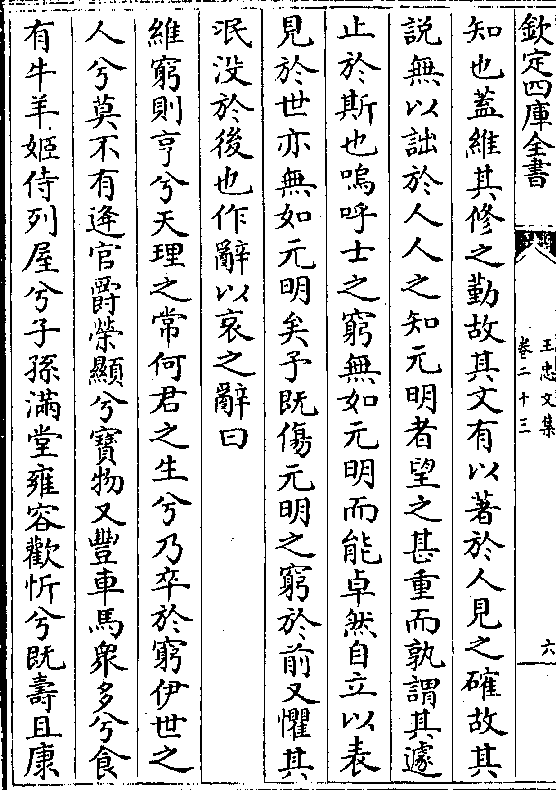 欽定四庫全書
王忠文集
卷二十三
六
知也蓋維其修之勤故其文有以著於人見之確故其
説無以詘於人人之知元明者望之甚重而孰謂其遽
止於斯也嗚呼士之窮無如元明而能卓然自立以表
見於世亦無如元明矣予既傷元明之窮於前又懼其
泯没於後也作辭以哀之辭曰
維窮則亨兮天理之常何君之生兮乃卒於窮伊世之
人兮莫不有逄官爵榮顯兮寶物又豐車馬衆多兮食
有牛羊姬侍列屋兮子孫滿堂雍容歡忻兮既壽且康